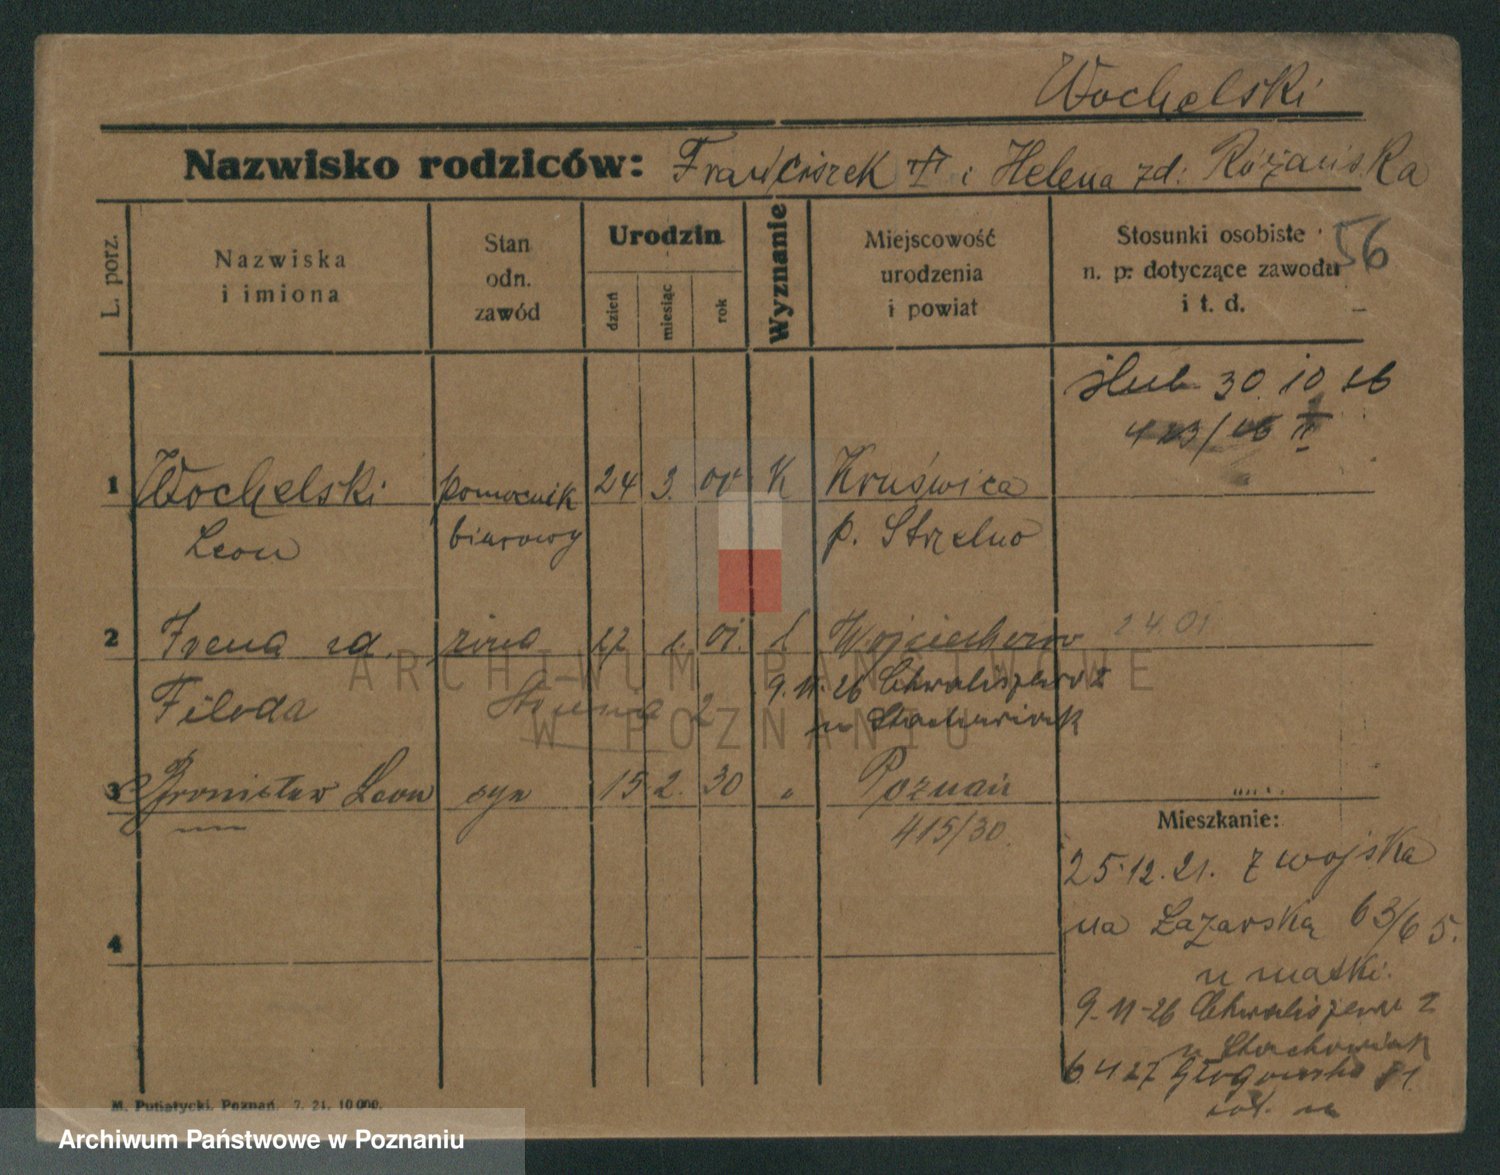 Wochelski
Nazwisko rodziców: Franciszek i Helena zd: Różańska
L. porz.
Nazwiska
i imiona
Stan
odn.
zawód
Urodzin
dzień
miesiąc
rok
Wyznanie
Miejscowość
urodzenia
i powiat
Stosunki osobiste
n. p. dotyczące zawodu
i t. d.
56
ślub 30.10.26
1 Wochelski pomocnik 24 3. 00 K Kruświca
Leon biurowy p. Strzelno
2 Irena zd. żona 17 1. 01. Wojciechowo 24.01
Filoda 9.11.26 Chwaliszewo 2
u Stachowiak
3 Bronisław Leon syn 15 2. 30 " Poznań
415/30.
Mieszkanie:
25.12.21. z wojska
na Łazarską 63/65.
u matki.
4
9.11-26 Chwaliszewo 2
u Stachowiak
6.4 27 Głogowska
M. Putiatycki, Poznań. 7. 21. 10000.
ARCHIWUM PAŃSTWOWE
W POZNANIU
Archiwum Państwowe w Poznaniu